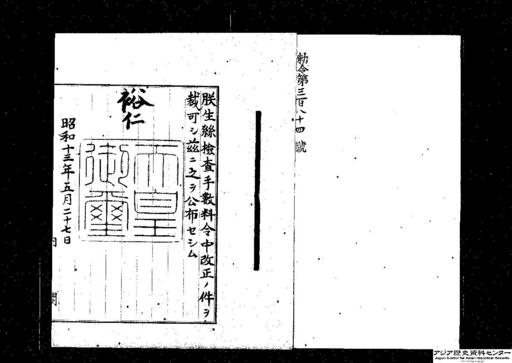 勅令第三百八十四號
朕生絲檢査手數料令中改正ノ件ヲ
裁可シ茲ニ之ヲ公布セシム
裕仁
天皇御璽
昭和十三年五月二十七日
アジア歴史資料センター
Japan Center for Asian Historical Records